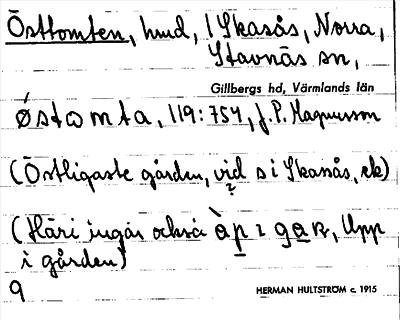 Östtomten, hmd, i Skasås, Norra,
Stavnäs sn,
Gillbergs hd, Värmlands län
østomta, 119:754, J.P. Magnusson
(Östligaste gården, vid s i Skasås, ek)
?
(Häri ingår också Upp
i gården)
9
HERMAN HULTSTRÖM c. 1915